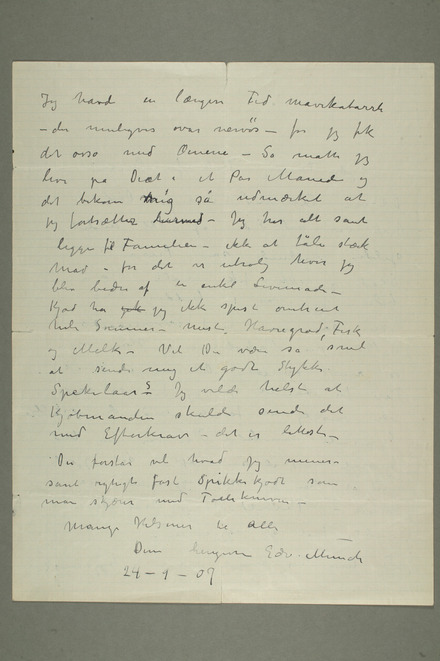 Jeg havde en længere Tid mavekatarrh
– der muligvis ovar nervøs – for jeg fik
det osså med Ørnene – Så måtte jeg
leve på Diæt i et Par Måneder og
det bekom mig så udmærket at
jeg fortsætter hermed – Jeg har alt sant
ligger til Familien – ikke at tåle stærk
mad – for det er utrolig hvor jeg
blev bedre af en enkel Levemåde –
Kjød har jeg ikke spist omtrent
hele Sommeren – mest Havregrød, Fisk
og Melk – Vil Du være så snil
at sende mig et godt Stykke
Spekelaar – Jeg vilde helst at
Kjøbmanden skulde sende det
med Efterkrav – det er lettest –
Du forstår vel hvad jeg mener
sånt rigtigt fast Spikkekjødt som
man skjærer med Tollekniven –
Mange Hilsener til alle
Din hengivne Edv. Munch
24 – 9 – 09